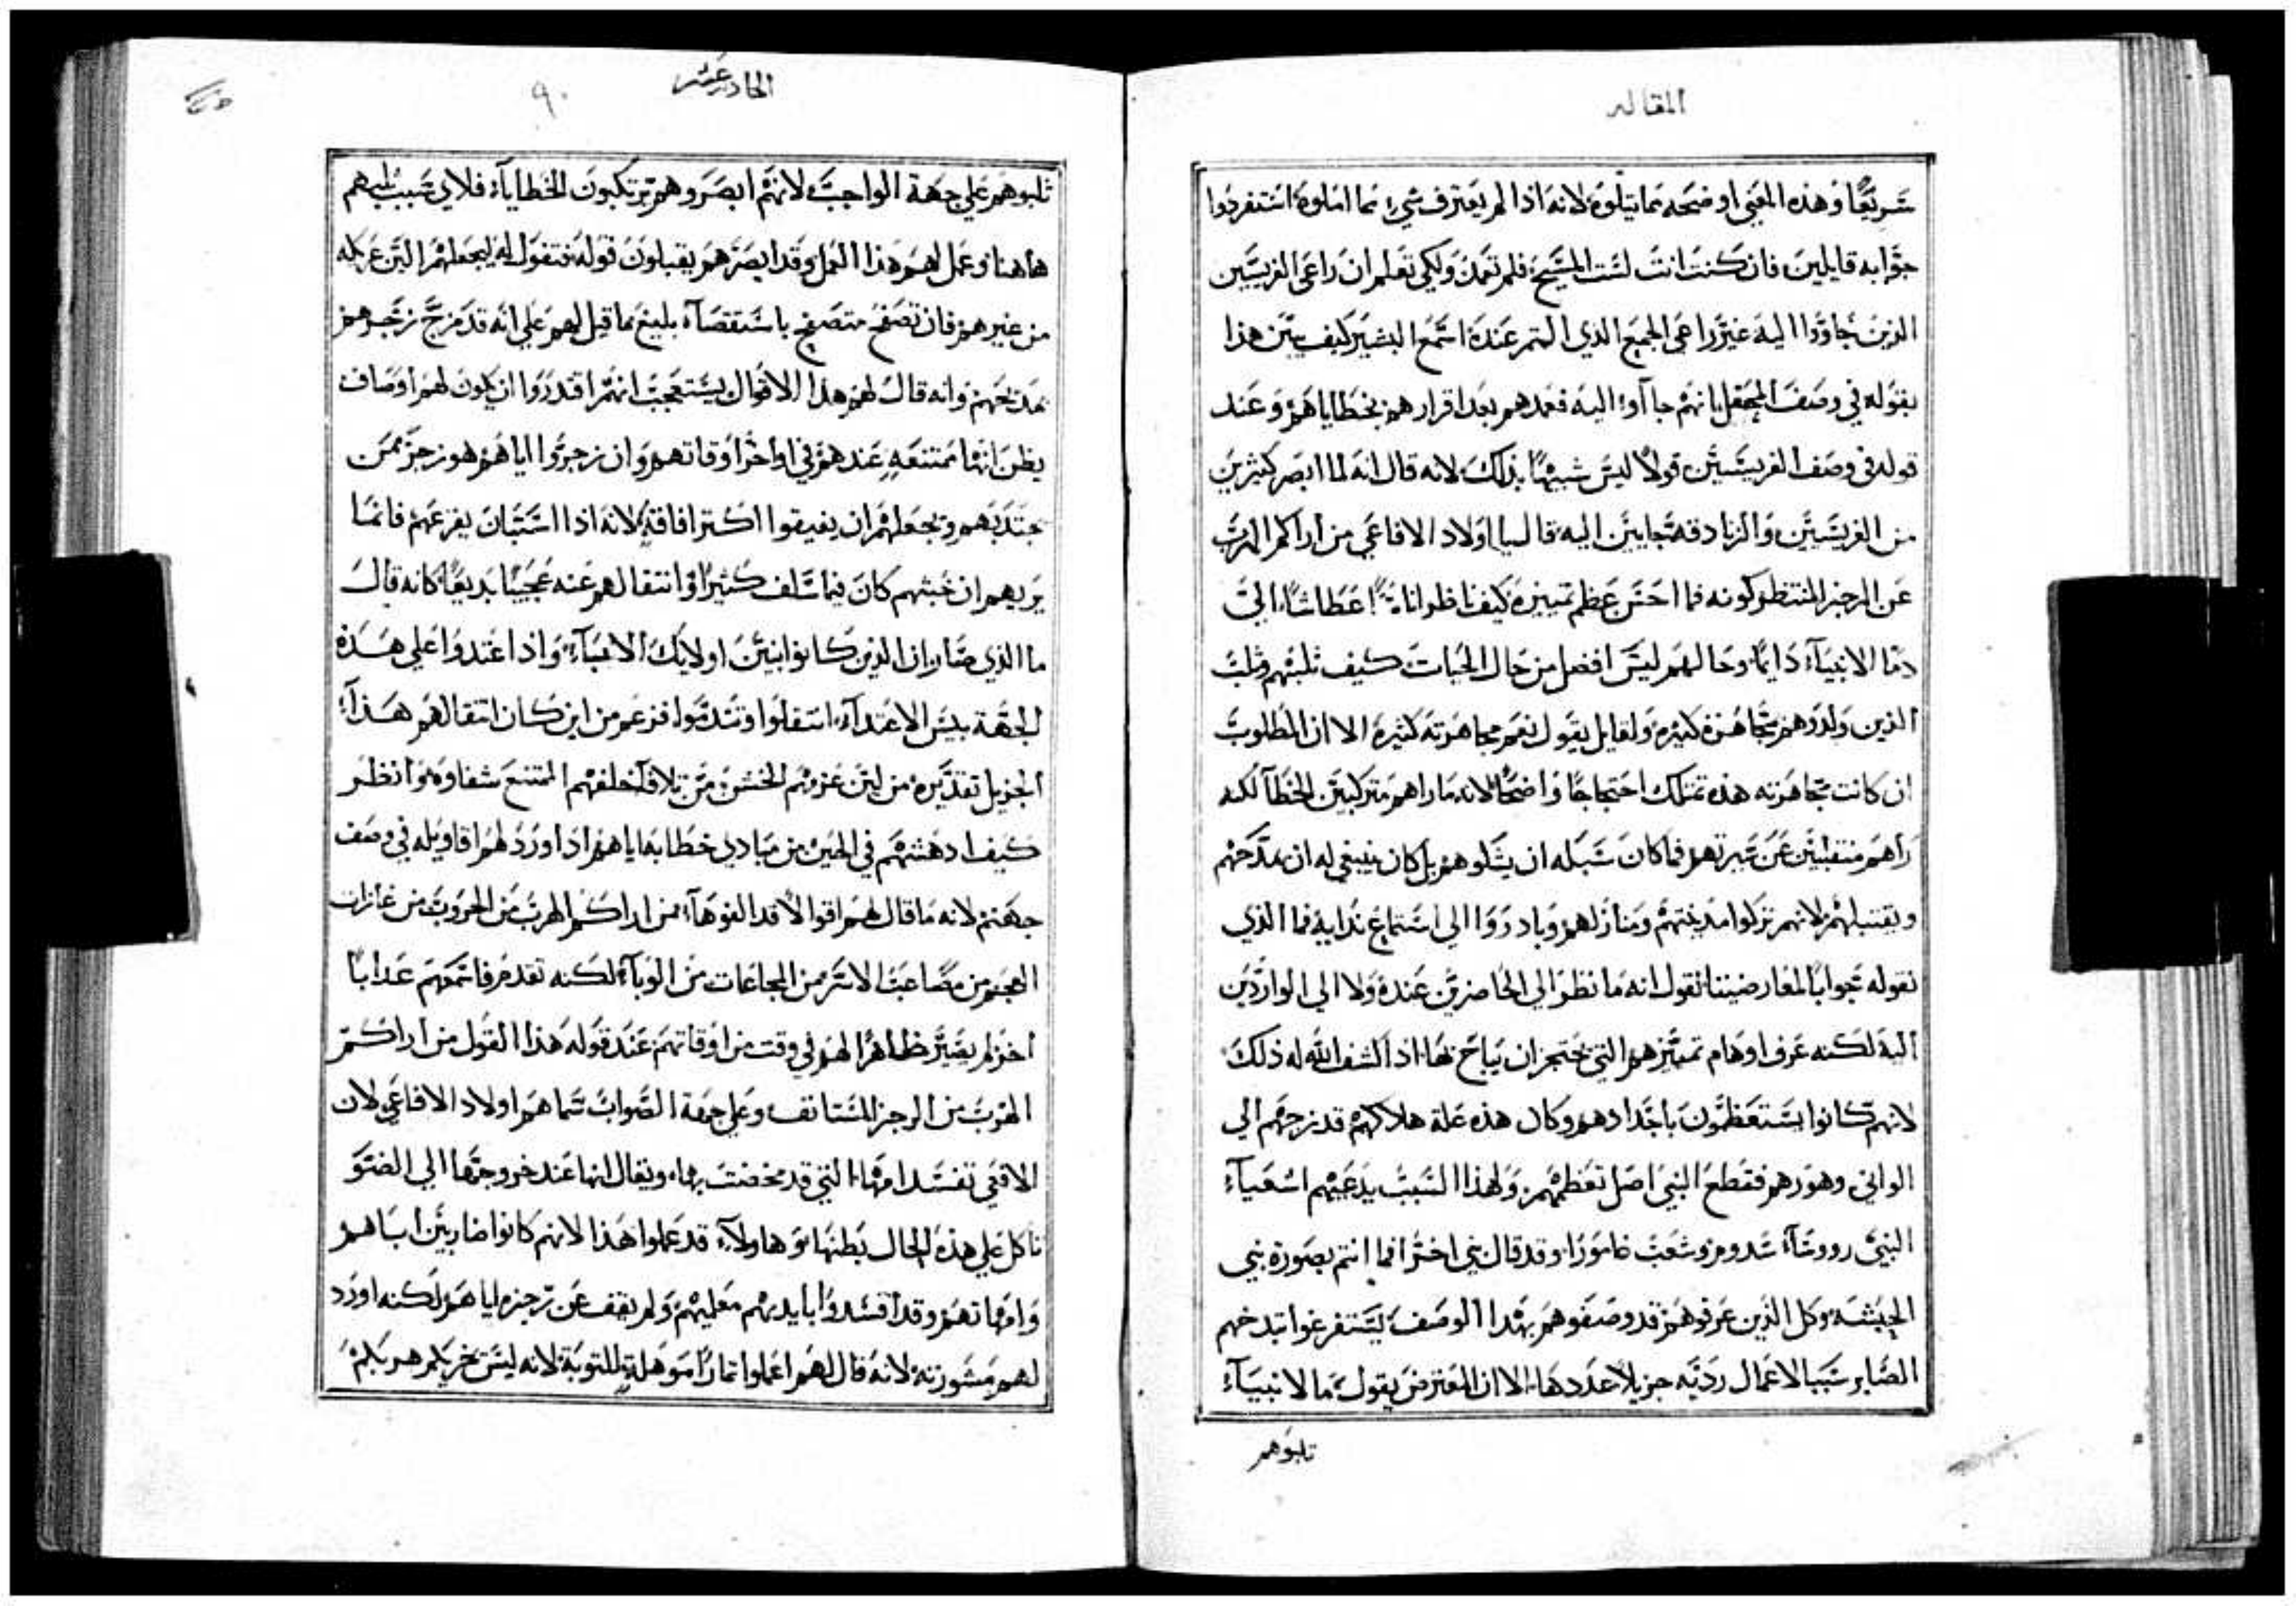 المقاله
شريعًا وهذه المعني اوضحه بما يتلوه لانه اذا لم يعترف بشيء مما امتلوه استفردوا
جوابه قايلين فان كنت انت لست المسيح فلم تعمد ولكي تعلم ان راعي الفريسيين
الذين جاووا اليه غير راعي الجمع الذي التمر عنده استمع البشير كيف يبين هذا
بقوله في وصف المحفل بانهم جاآوا اليه فعمدهم بعد اقرارهم بخطاياهم وعند
قوله في وصف الفريسيين قولاً ليس شبيهًا بذلك لانه قال انه لما ابصر كثيرين
من الفريسيين والزنادقه جايين اليه قال يا اولاد الافاعي من اراكم الهرب
عن الرجز المنتظر كونه فما احسن عظم تمييزه كيف ناظر اناسًا عطاشًا الي
دما الانبيآء دايمًا وحالهم ليس افضل من حال الحيات كيف ثلبهم وثلب
الذين ولدوهم بمجاهره كبيره ولقايل يقول نعم مجاهرته كثيره الا ان المطلوب
ان كانت مجاهرته هذه تمتلك احتجاجًا واضحًا لانه ما راهم مرتكبين الخطا لكنه
راهم منتقلين عن سيرتهم فما كان سبله ان يثلوهم بل كان ينبغي له ان يمدحهم
ويقتبلهم لانهم تركوا مدينتهم ومنازلهم وبادروا الي استماع ندايه فما الذي
نقوله جوابًا لمعارضيننا نقول انه ما نظر الي الحاضرين عنده ولا الي الواردين
اليه لكنه عرف اوهام تمييزهم التي تحتجز ان يباح بها اذ اكشف الله له ذلك
لانهم كانوا يستعظمون باجدادهم وكان هذه علة هلاكهم قد زجتهم الي
الواني وهورهم فقطع النبي اصل تعظمهم ولهذا السبب يدعيهم اشعيآء
النبي روسآء سدوم وشعب عامورا وقد قال نبي اخر افما انتم بصورة بني
الحبشه وكل الذين عرفوهم قد وصفوهم بهذا الوصف ليستفرغوا تبذخهم
الصاير سبب الاعمال رديه جزيلاً عددها الا ان المعترض يقول ما الانبيآء
تلبوهم
الحادي عشر
٩٠
ثلبوهم علي جهة الواجب لانهم ابصروهم يرتكبون الخطايآء فلاي سبب ثلبهم
هاهنا وعمل لهم هذا العمل وقد ابصرهم يقبلون قوله فنقول له ليجعلهم الين عريكه
من غيرهم فان تصفح متصفح باستقصآء بليغ ما قيل لهم علي انه قد مزج زجرهم
بمدحهم وانه قال لهم هذا الاقوال يستعجب انهم اقدروا ان يكون لهم اوصاف
يظن انها ممتنعه عندهم في اواخر اوقاتهم وان زجره اياهم هو زجر ممن
يجتذبهم ويجعلهم ان يفيقوا اكثر افاقةً لانه اذا استبان يفزعهم فانما
يريهم ان خبثهم كان فيما سلف كثيرًا وانتقالهم عنه عجيبًا بديعًا كانه قال
ما الذي صار ان الذين كانوا ابنين اولايك الانبيآء واذا اغتدوا علي هذه
الجهة بيس الاغتدآء انتقلوا وتندموا فزعم من اين كان انتقالهم هذآء
الجزيل تقديره من لين عزمهم الخشن من تلاقا خلقهم الممتنع شفاوه وانظر
كيف ادهشهم في الحين من مبادي خطابه اياهم اذ اورد لهم اقاويله في وصف
جهنم لانه ما قال لهم اقوالاً قد الفوها من اراكم الهرب من الحروب من غارات
العجم من مصاعب الاسر من المجاعات من الوبآء لكنه تقدم فاسمعهم عذابًا
اخر لم يصير ظاهرًا لهم في وقت من اوقاتهم عند قوله هذا القول من اراكم
الهرب من الرجز المستانف وعلي جهة الصواب سماهم اولاد الافاعي لان
الافعي تفسد امها التي قد مخضت بها ويقال انها عند خروجها الي الضو
تاكل علي هذه الحال بطنها وهاولآء قد عملوا هذا لانهم كانوا ضاربين اباهم
وامهاتهم وقد افسدوا بايديهم معلميهم ولم يقف عن زجره اياهم لكنه اورد
لهم مشورته لانه قال لهم اعملوا ثمارًا موهلةً للتوبة لانه ليس يخزيكم هربكم